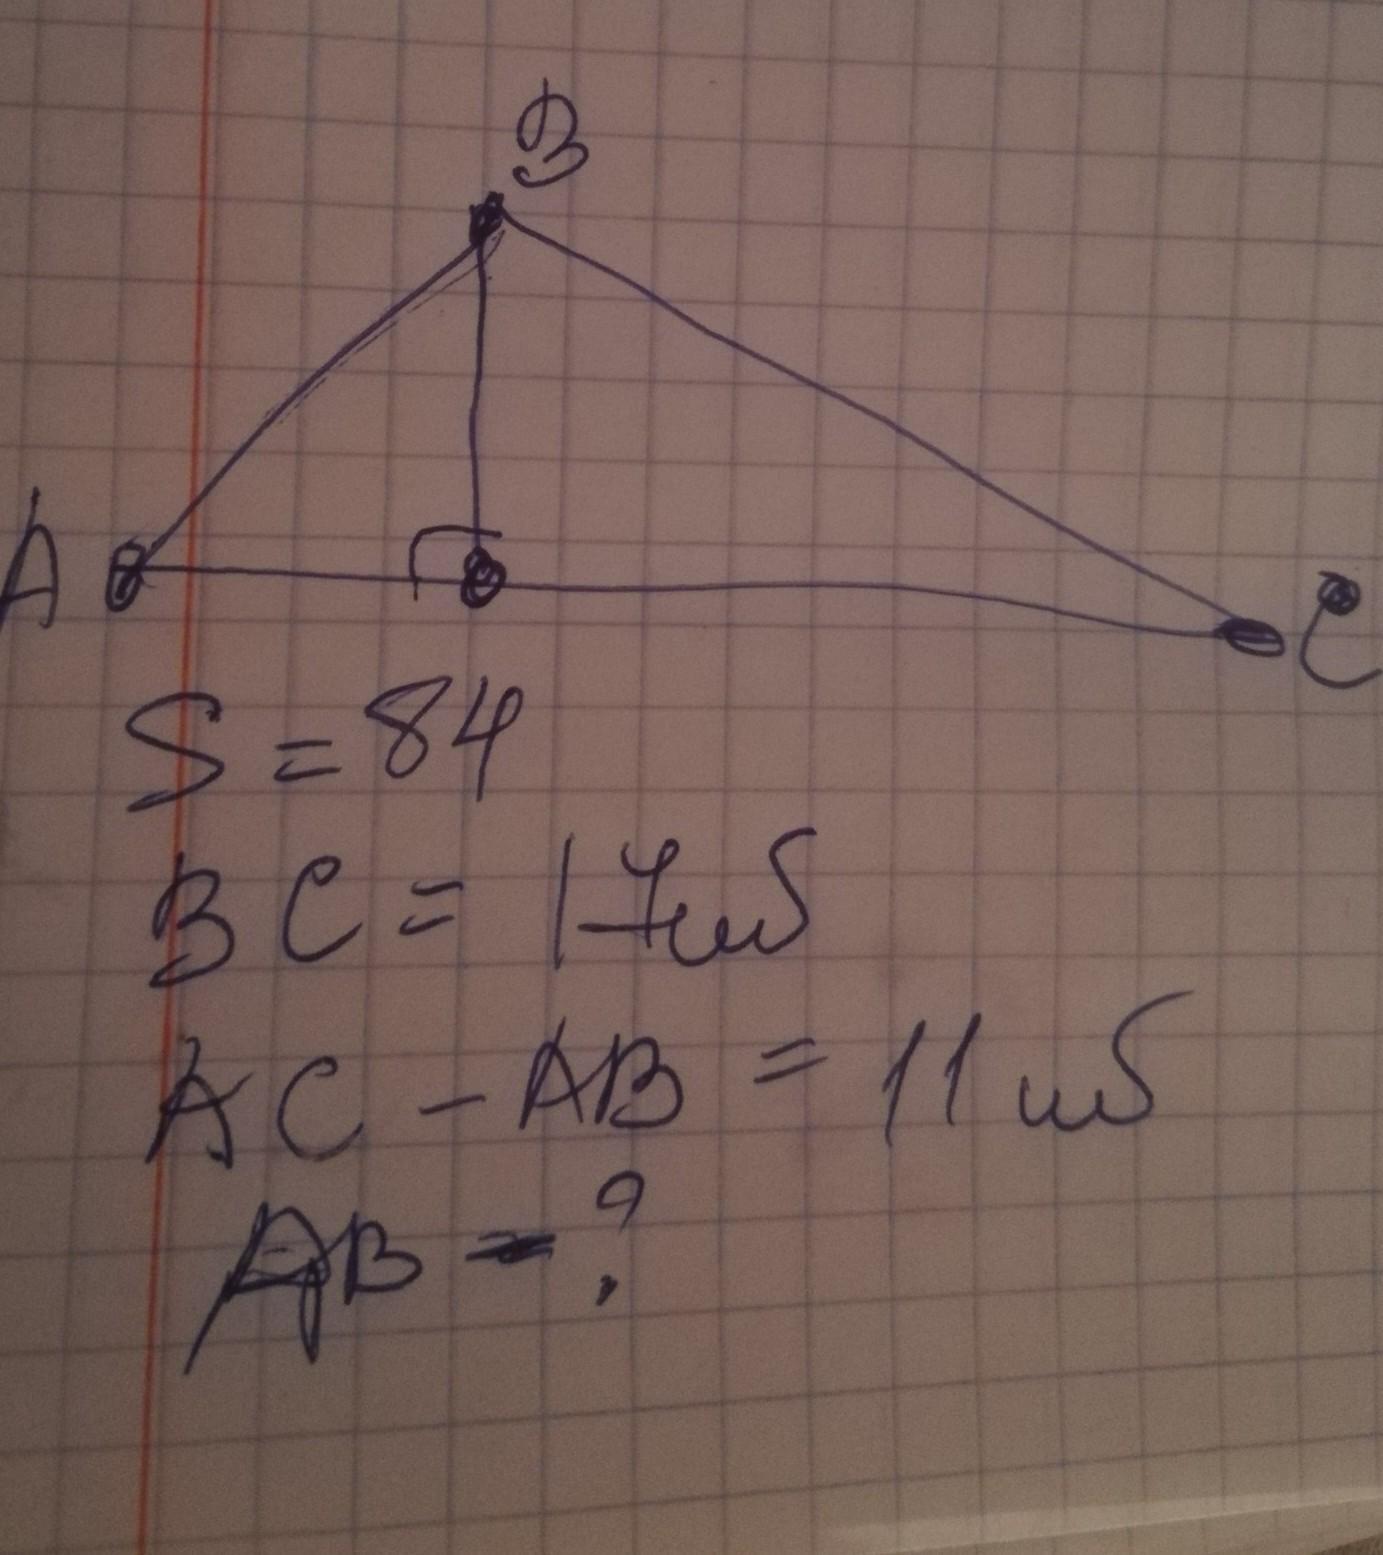 B
A
C
S = 84
BC = 17 սմ
AC - AB = 11 սմ
AB - ?